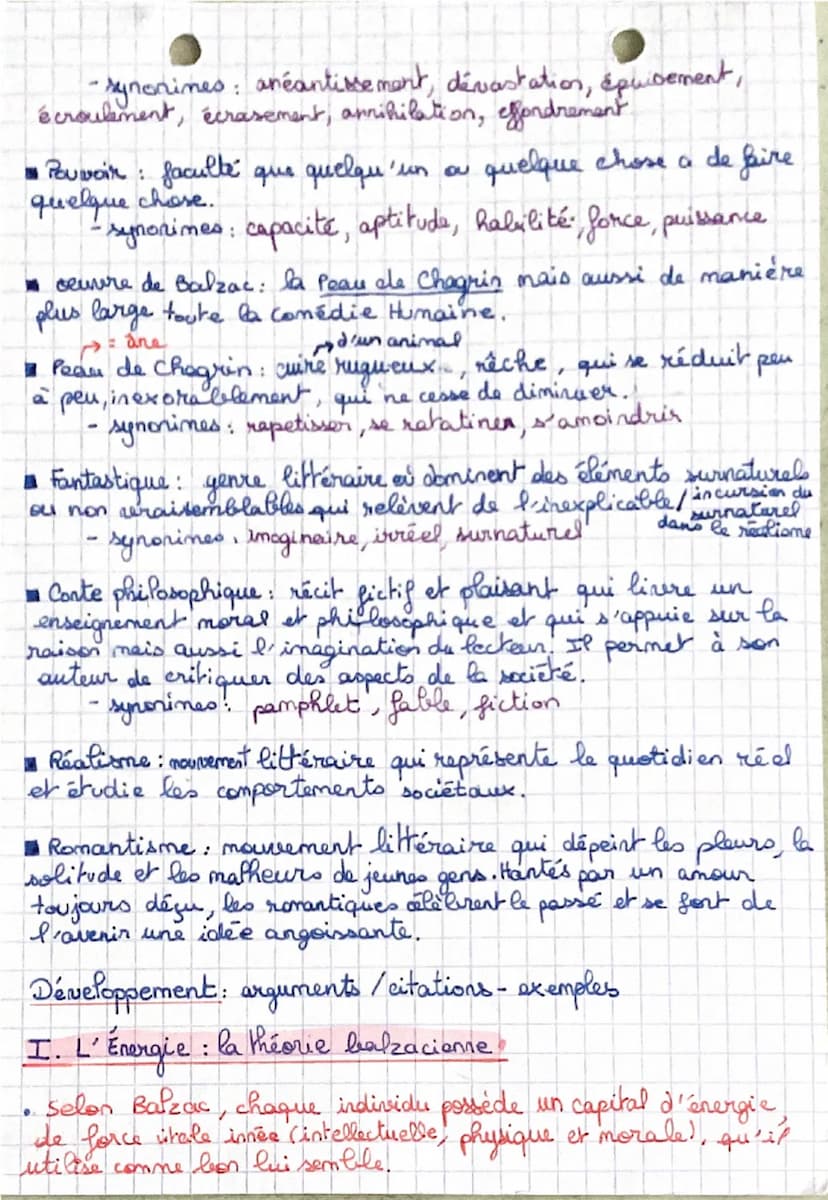 - synonimes : anéantissement, dévastation, épuisement,
écroulement, écrasement, annihilation, effondrement.
■ Pouvoir : faculté que quelqu'un ou quelque chose a de faire
quelque chose.
- synonimes : capacité, aptitude, habilité, force, puissance
■ œuvre de Balzac : la Peau de Chagrin mais aussi de manière
plus large toute la Comédie Humaine.
→ = âne →d'un animal
■ Peau de Chagrin : cuire rugueux, rêche, qui se réduit peu
à peu, inexorablement, qui ne cesse de diminuer.
- synonimes : rapetisser, se ratatiner, s'amoindrir
■ Fantastique : genre littéraire où dominent des éléments surnaturels
ou non vraisemblables qui relèvent de l'inexplicable / incursion du
surnaturel
dans le réalisme
- synonimes : imaginaire, irréel, surnaturel
■ Conte philosophique : récit fictif et plaisant qui livre un
enseignement moral et philosophique et qui s'appuie sur la
raison mais aussi l'imagination du lecteur. Il permet à son
auteur de critiquer des aspects de la société.
- synonimes : pamphlet, fable, fiction
■ Réalisme : mouvement littéraire qui représente le quotidien réel
et étudie les comportements sociétaux.
■ Romantisme : mouvement littéraire qui dépeint les pleurs, la
solitude et les malheurs de jeunes gens. Hantés par un amour
toujours déçu, les romantiques célèbrent le passé et se font de
l'avenir une idée angoissante.
Développement : arguments / citations - exemples
I. L'Énergie : la théorie balzacienne
• Selon Balzac, chaque individu possède un capital d'énergie,
de force vitale innée (intellectuelle, physique et morale), qu'il
utilise comme bon lui semble.